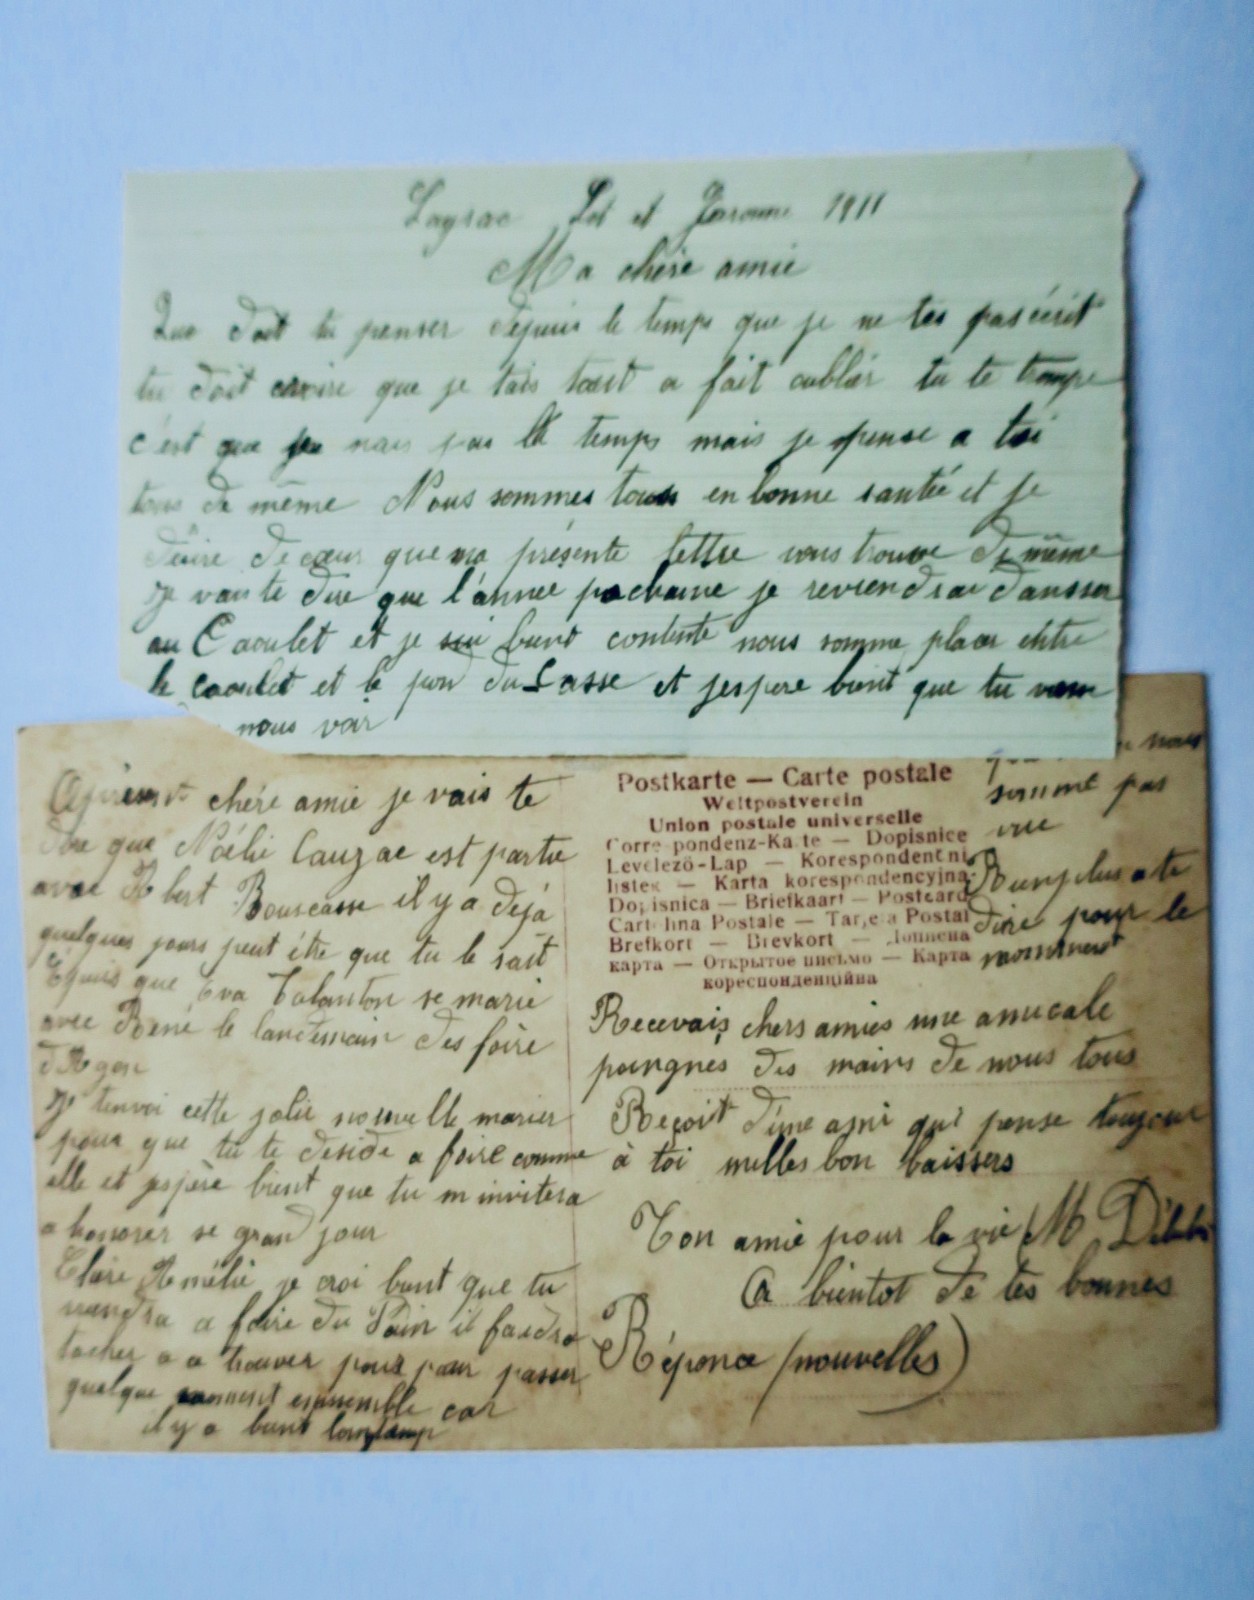 Layrac Lot et Garonne 1911
Ma chère amie
Que doit tu penser depuis le temps que je ne tes pas écrit
tu doit croire que je tais tout a fait oublier tu te trompe
c'est que je nais pas le temps mais je pense a toi
tous de même Nous sommes tous en bonne santée et je
désire de cœur que ma présente lettre vous trouve de même
je vais te dire que l'année pochaine je reviendrai dansser
au Caoulet et je sui bient contente nous somme placer entre
le Caoulet et le pon du Lasse et jespere bient que tu
nous voir
Apresent chére amie je vais te
dire que Noélie Cauzac est partie
avec Albert Bouscasse il y a déjà
quelques jours peut être que tu le sait
Epuis que Eva Talanton se marie
avec René le landemain des foire
d'Agen
Je tenvoi cette jolie nouvelle marier
pour que tu te déside a faire comme
elle et jespère bient que tu m invitera
a honorer se grand jour
Chère Amélie je croi bient que tu
viendra a foire du Pain il faudra
tacher a a trouver pour passer
quelque moment enssemble car
il y a bient lontemp
nous
somme pas
vue
Rien plus a te
dire pour le
momment
Postkarte — Carte postale
Weltpostverein
Union postale universelle
Corre pondenz-Ka te — Dopisnice
Levelezö-Lap — Korespondent ni
listek — Karta korespondencyjna
Dopisnica — Briefkaart — Postcard
Cart lina Postale — Tar,e a Postal
Brefkort — Brevkort —
карта — Открытое письмо — Карта
кореспонденційна
Recevais chers amies une amicale
poingnés des mains de nous tous
Reçoit d'une ami qui pense toujour
à toi milles bon baissers
Ton amie pour la vie M
A bientot de tes bonnes
Réponce (nouvelles)